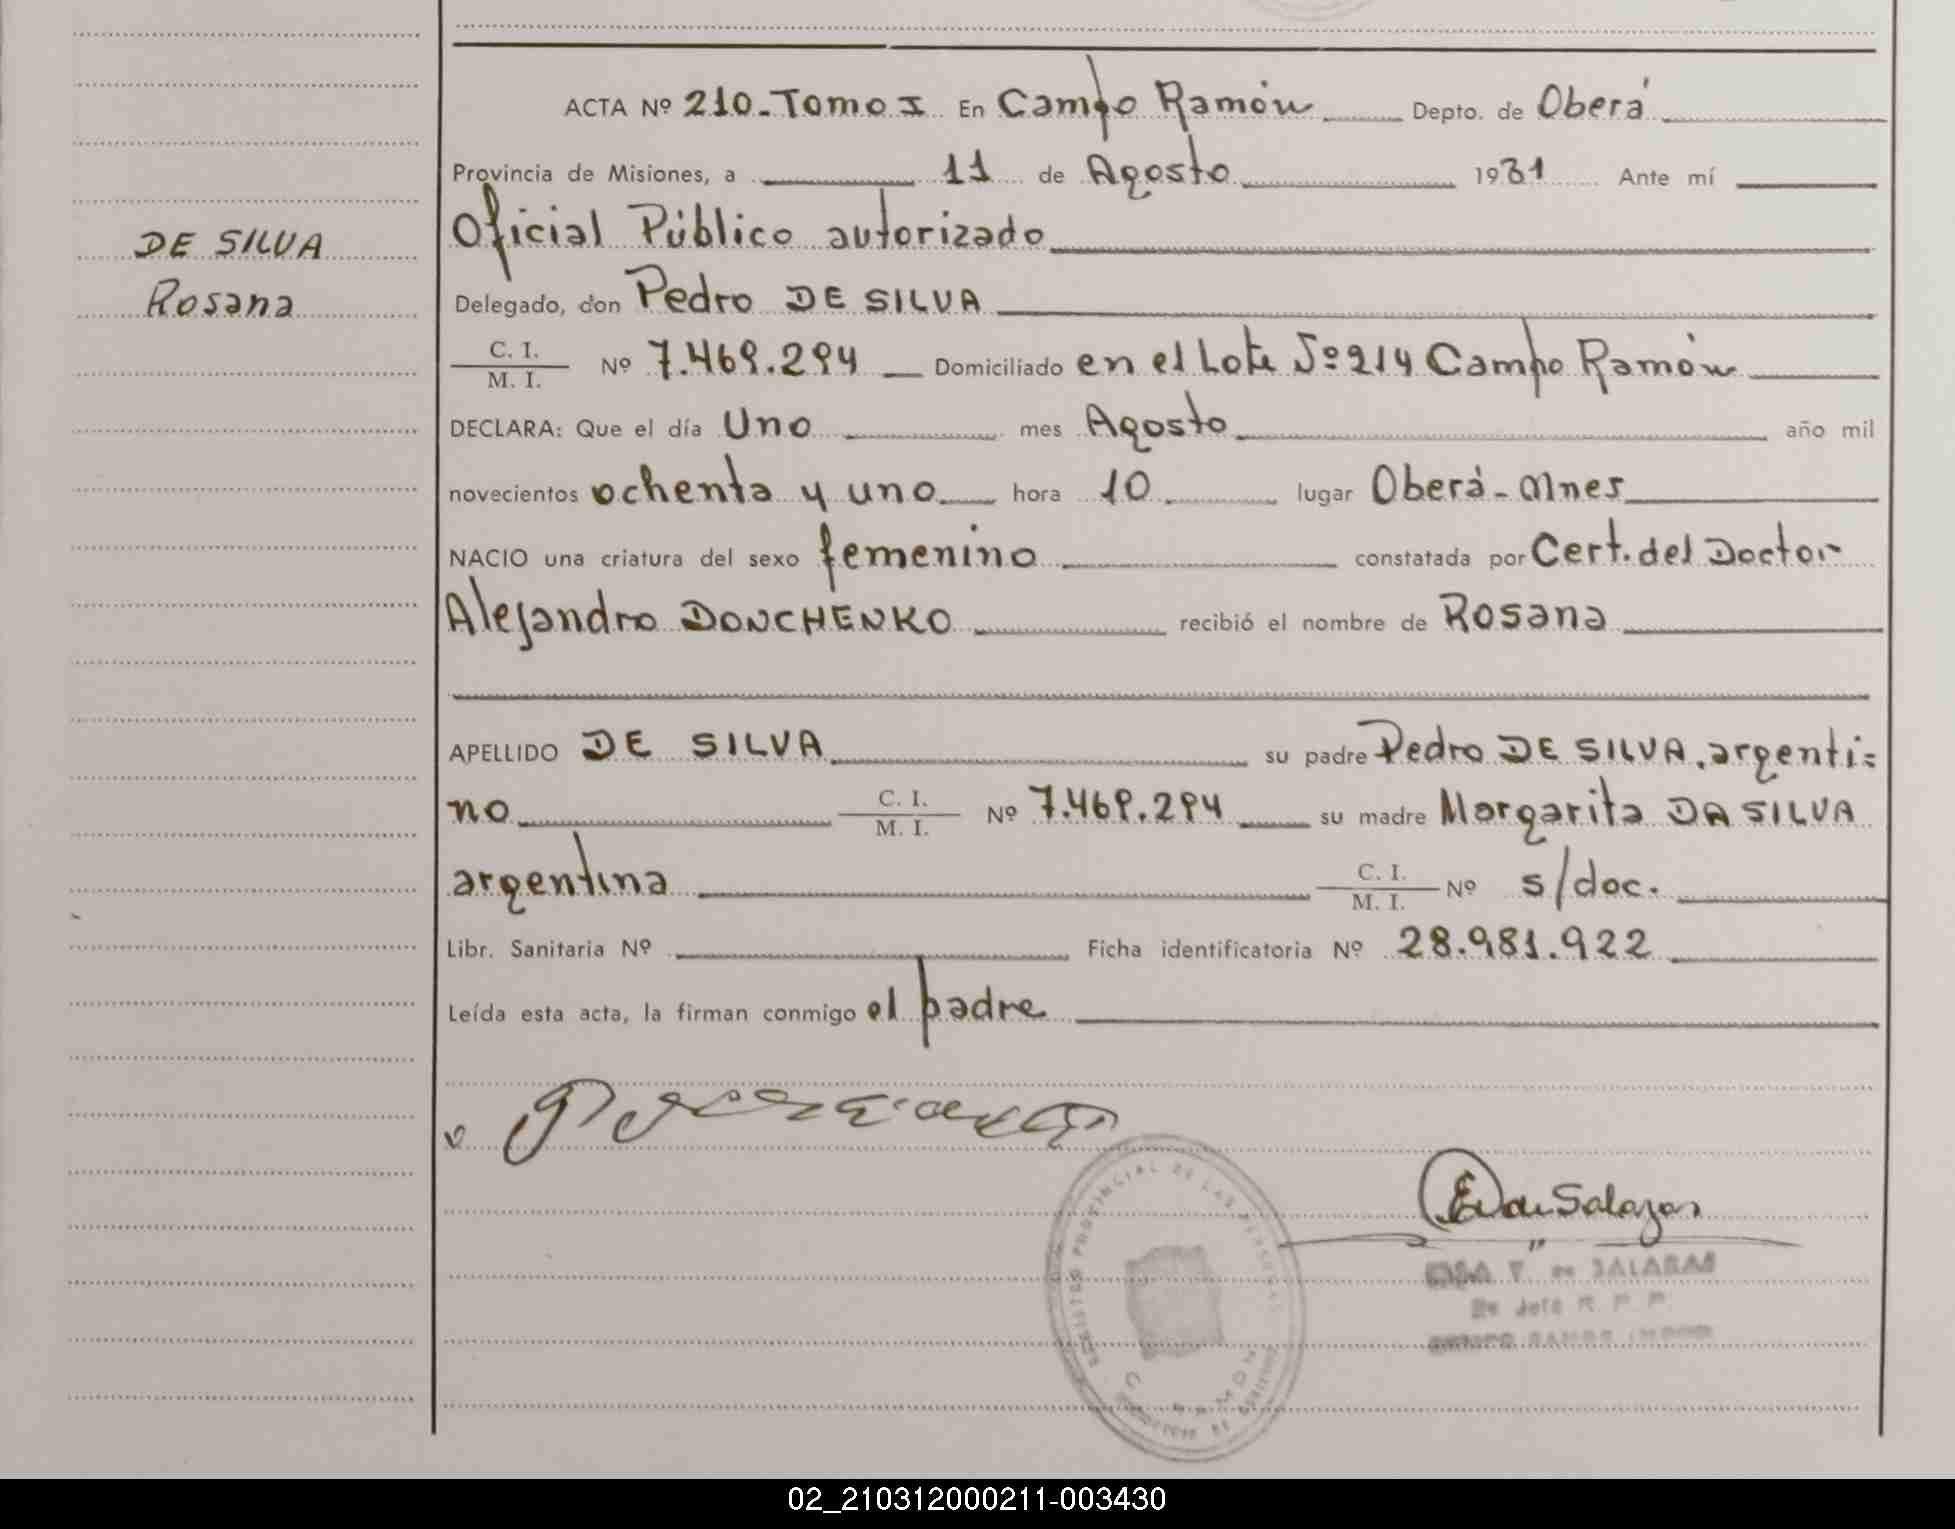 ACTA Nº 210-Tomo I En Campo Ramón Depto. de Oberá
Provincia de Misiones, a 11 de Agosto 1981 Ante mí
Oficial Público autorizado
DE SILVA
Rosana
Delegado, don Pedro DE SILVA
C. I.
M. I.
Nº 7.469.294 Domiciliado en el Lote Nº 214 Campo Ramón
DECLARA: Que el día Uno mes Agosto año mil
novecientos ochenta y uno hora 10 lugar Oberá-Mnes
NACIO una criatura del sexo femenino constatada por Cert. del Doctor
Alejandro DONCHENKO recibió el nombre de Rosana
APELLIDO DE SILVA su padre Pedro DE SILVA, argenti=
no C. I. M. I. Nº 7.469.294 su madre Margarita DA SILVA
argentina C. I. M. I. Nº s/doc.
Libr. Sanitaria Nº Ficha identificatoria Nº 28.981.922
Leída esta acta, la firman conmigo el padre
REGISTRO PROVINCIAL DE LAS PERSONAS
de Salazar
02_210312000211-003430